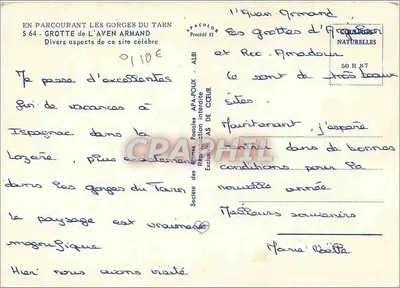 EN PARCOURANT LES GORGES DU TARN
S.64 - GROTTE de L'AVEN ARMAND
Divers aspects de ce site célèbre
0,10€
Je passe d'excellentes
fin de vacances à
Ispagnac dans la
Lozère, plus exactement
dans les gorges du Tarn
le paysage est vraiment
magnifique
Hier nous avons visité
Société des Cartes Postales APA-POUX - ALBI
Reproduction interdite
Exclusivité AS DE CŒUR
APACOLOR
Procédé
l'Aven Armand,
les grottes d'
et Roc Amadour
ce sont de très beaux
sites.
Maintenant, j'espère
rentrer dans de bonnes
conditions pour la
nouvelle année
Meilleurs souvenirs
Marie Noëlle
NATURELLES
50 R 87
CPAPHIL